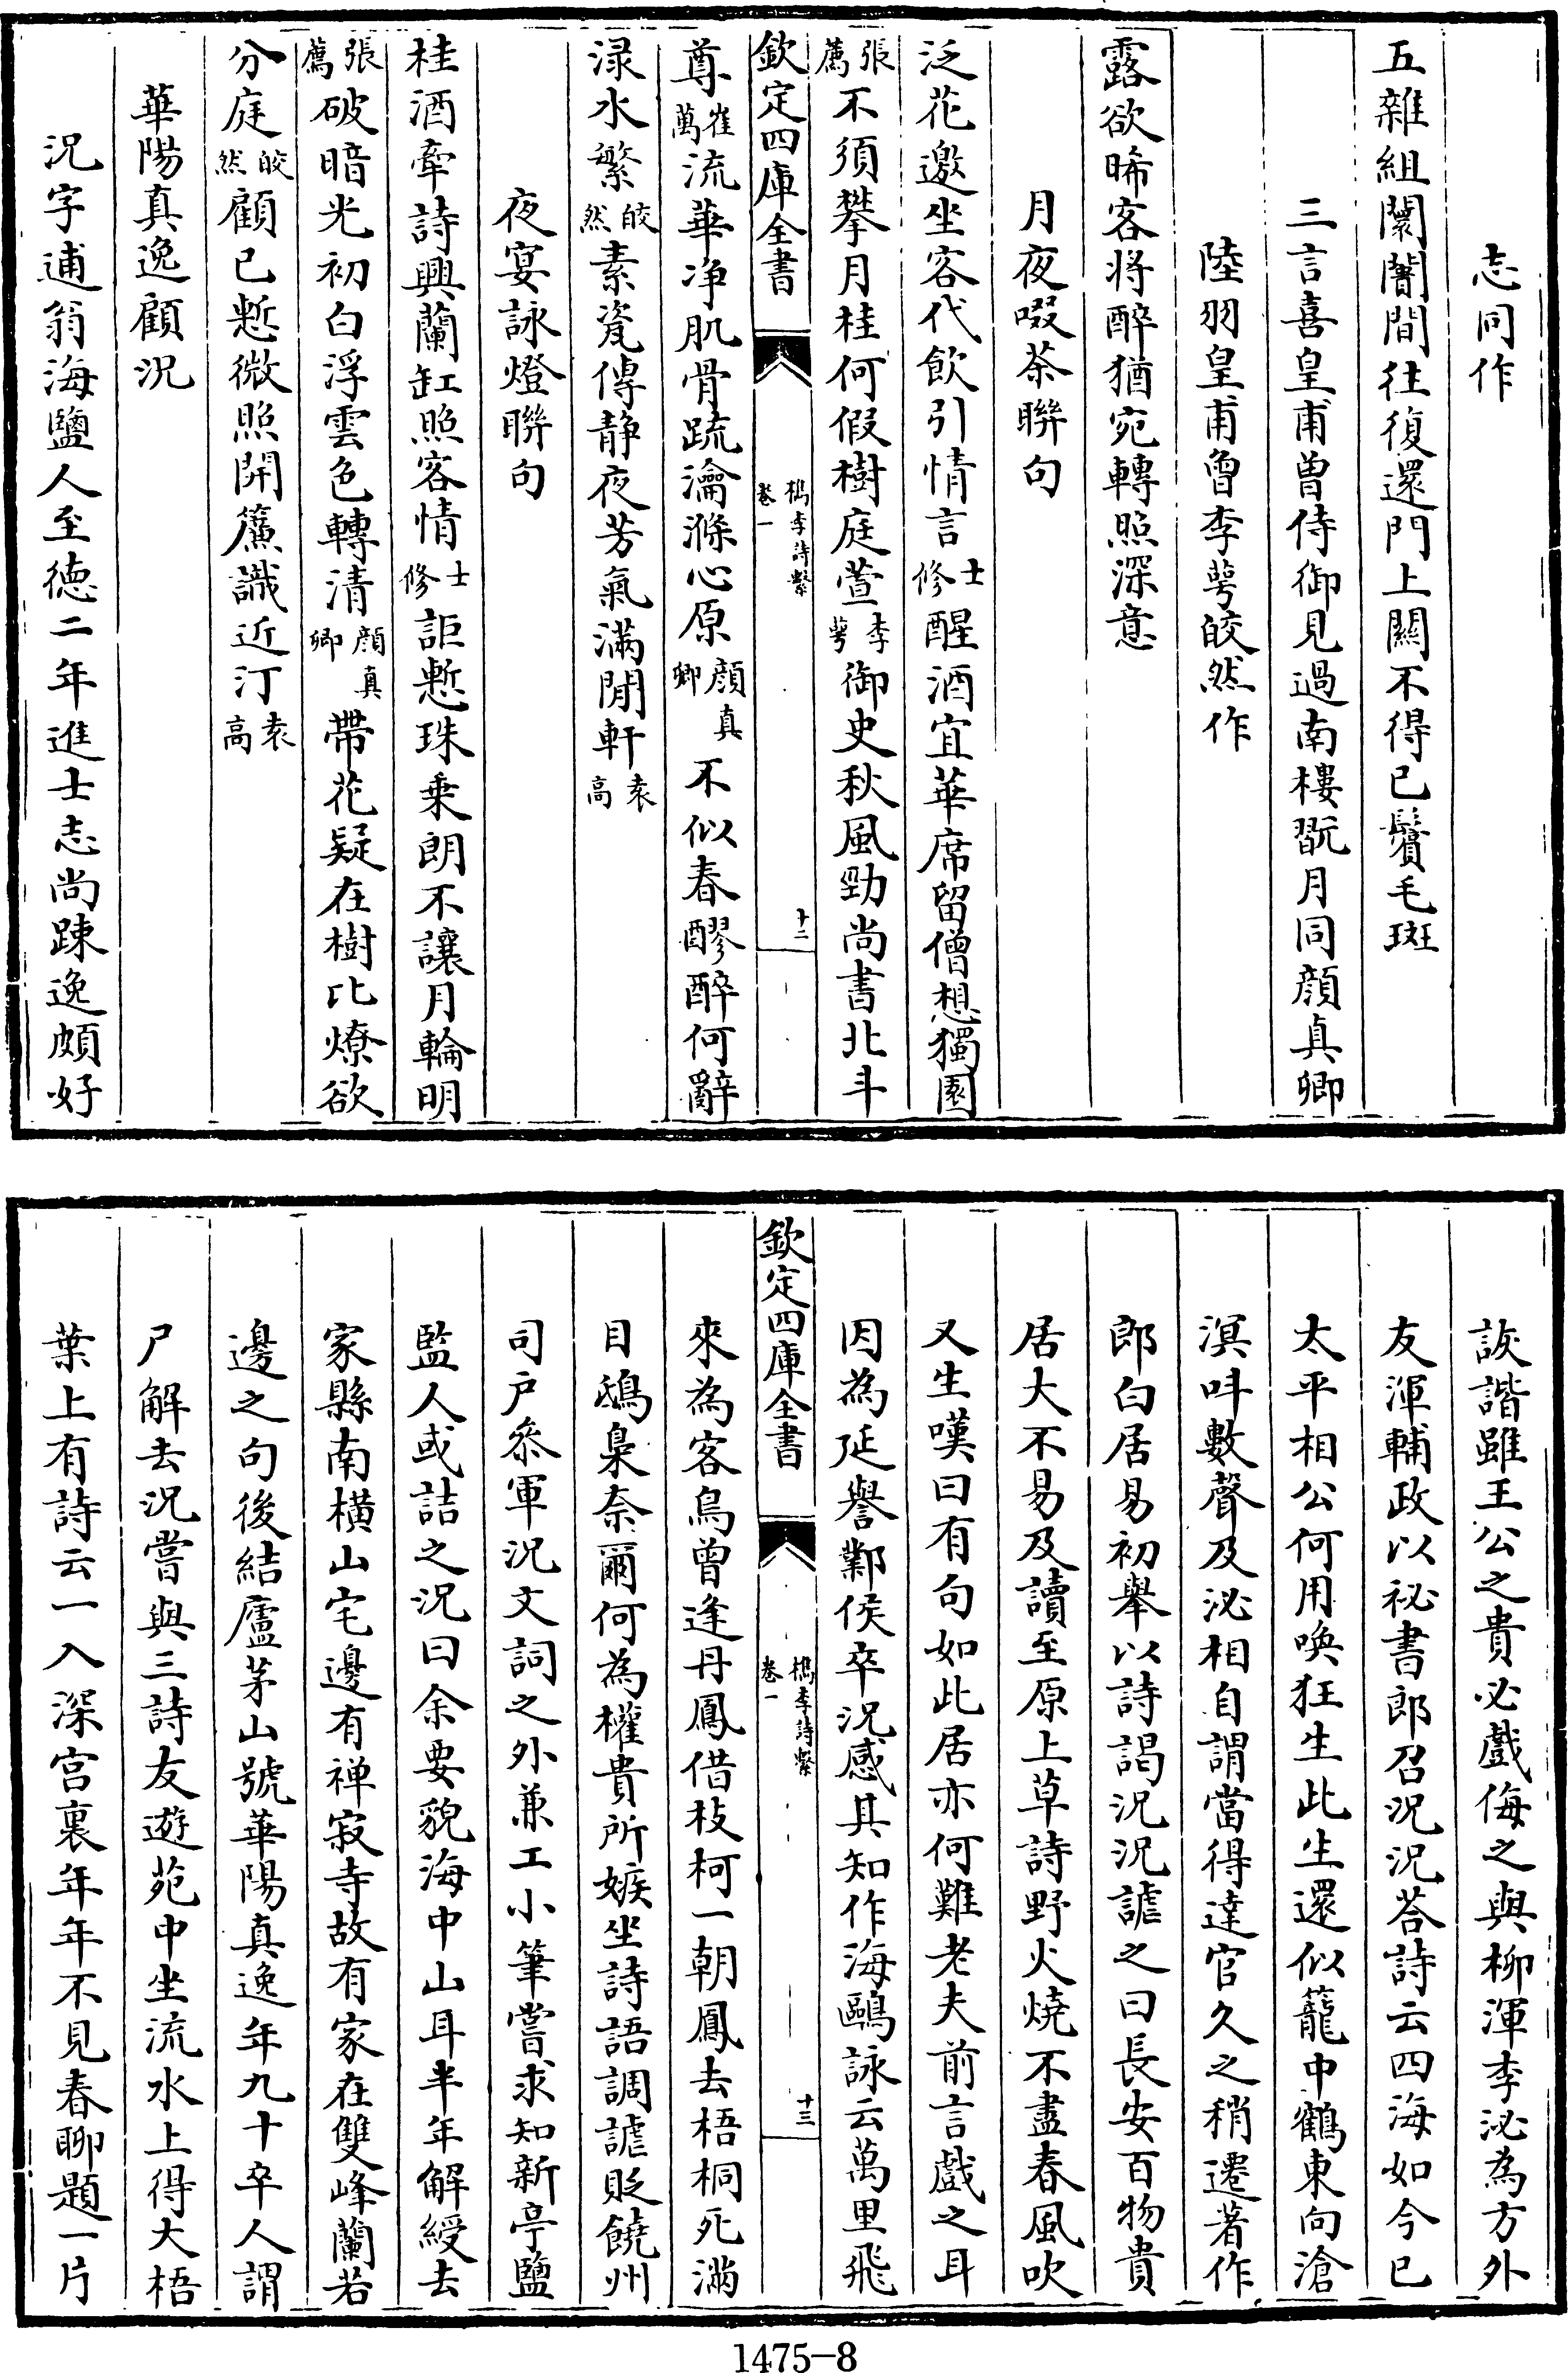 志同作
五雜組闤闠間往復還門上關不得已鬢毛斑
三言喜皇甫曾侍御見過南樓翫月同顔真卿
陸羽皇甫曾李萼皎然作
露欲晞客將醉猶宛轉照深意
月夜啜茶聯句
泛花邀坐客代飲引情言士修醒酒宜華席留僧想獨園
張薦不須攀月桂何假樹庭萱李萼御史秋風勁尚書北斗
欽定四庫全書
檇李詩繫
卷一
十二
尊崔萬流華净肌骨疏瀹滌心原顔真卿不似春醪醉何辭
渌水繁皎然素瓷傳静夜芳氣滿閒軒袁高
夜宴詠燈聯句
桂酒牽詩興蘭缸照客情士修詎慙珠乗朗不讓月輪明
張薦破暗光初白浮雲色轉清顔真卿帶花疑在樹比燎欲
分庭皎然顧已慙微照開簾識近汀袁高
華陽真逸顧況
況字逋翁海鹽人至德二年進士志尚踈逸頗好
詼諧雖王公之貴必戲侮之與柳渾李泌為方外
友渾輔政以祕書郎召況況荅詩云四海如今已
太平相公何用喚狂生此生還似籠中鶴東向滄
溟呌數聲及泌相自謂當得達官久之稍遷著作
郎白居易初舉以詩謁況況謔之曰長安百物貴
居大不易及讀至原上草詩野火燒不盡春風吹
又生嘆曰有句如此居亦何難老夫前言戲之耳
因為延譽鄴侯卒況感其知作海鷗詠云萬里飛
欽定四庫全書
檇李詩繫
卷一
十三
來為客鳥曾逢丹鳳借枝柯一朝鳳去梧桐死滿
目鴟梟奈爾何為權貴所嫉坐詩語調謔貶饒州
司戶叅軍況文詞之外兼工小筆嘗求知新亭鹽
監人或詰之況曰余要貌海中山耳半年解綬去
家縣南横山宅邊有禅寂寺故有家在雙峰蘭若
邊之句後結廬茅山號華陽真逸年九十卒人謂
尸解去況嘗與三詩友遊苑中坐流水上得大梧
葉上有詩云一入深宫裏年年不見春聊題一片
1475-8